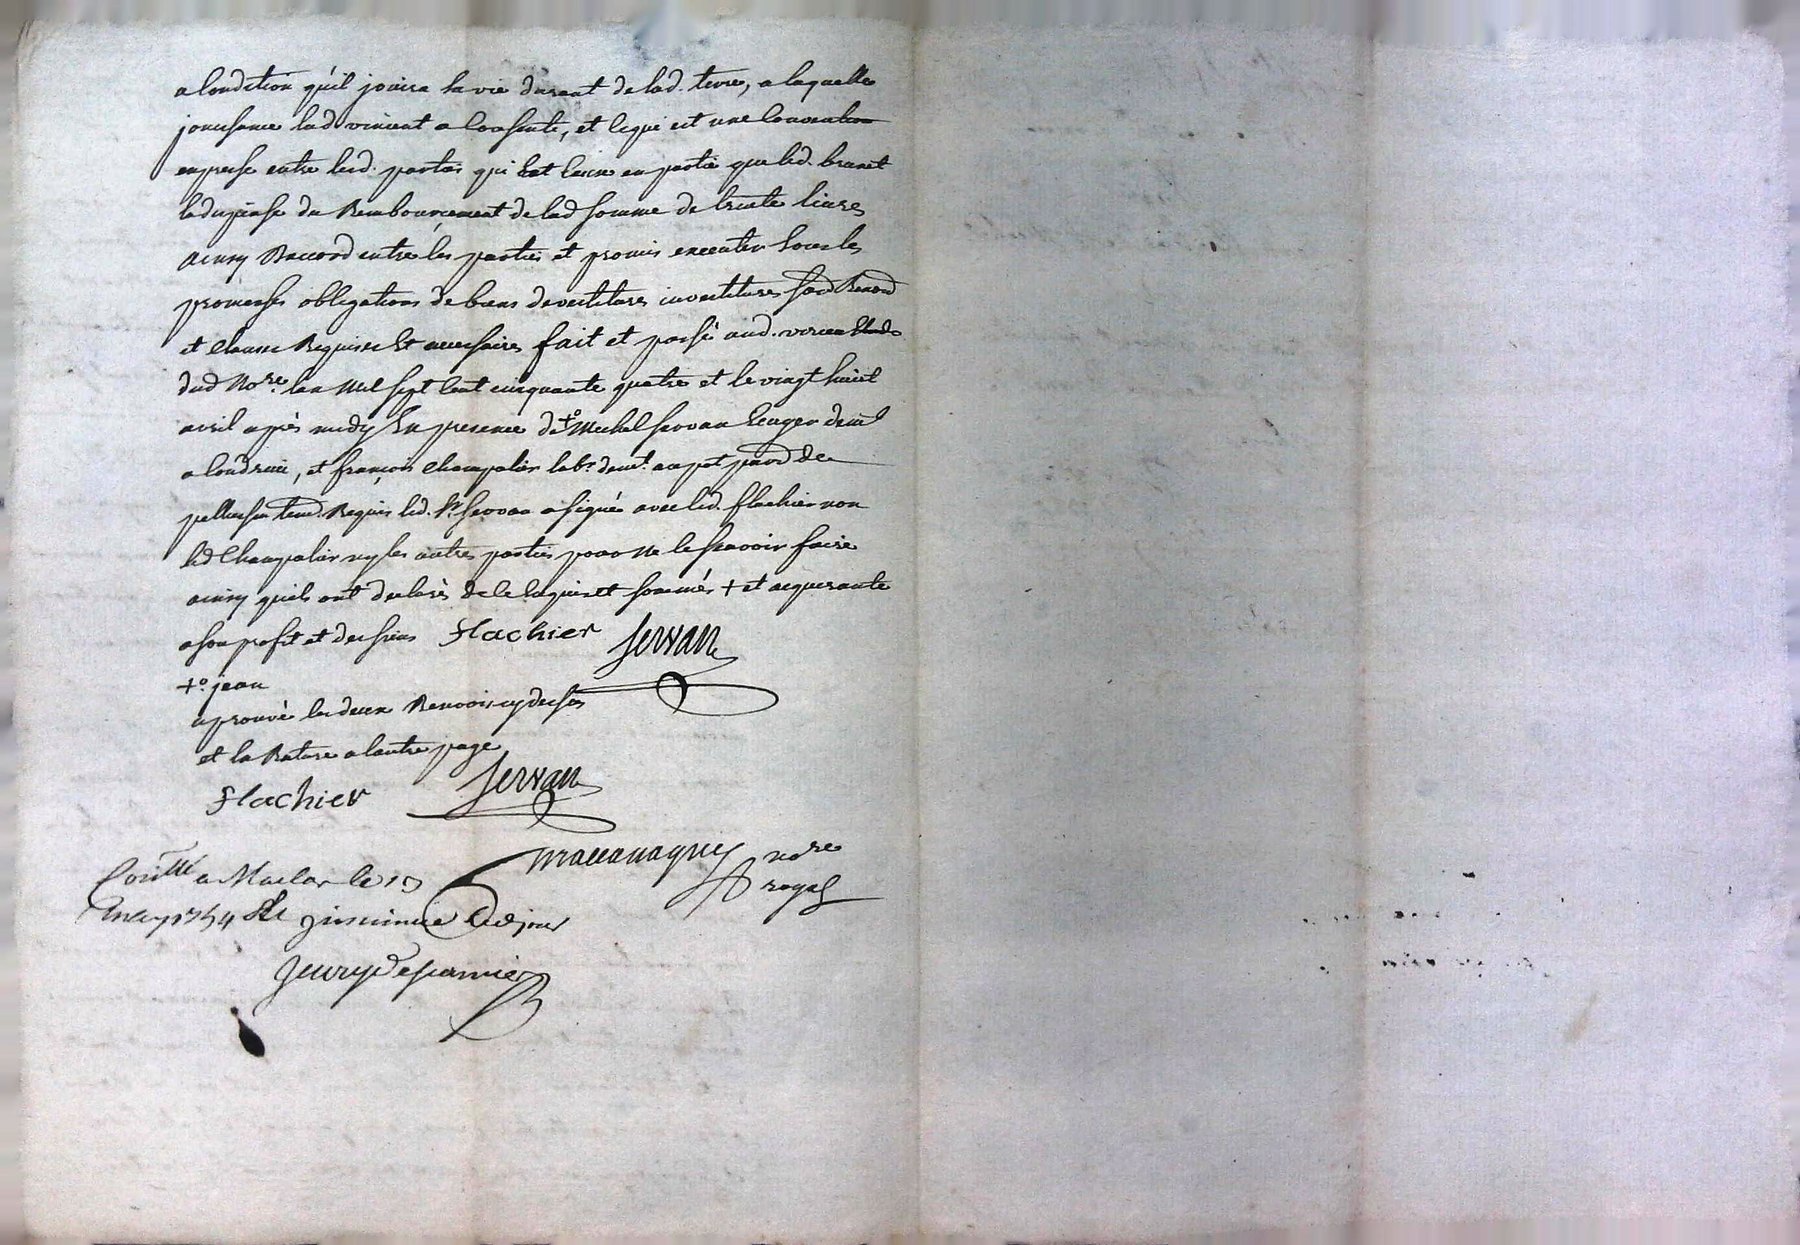 a Condition qu'il jouira sa vie durant de lad. terre, a laquelle
jouissance lad vincent a Consenti, et ce qui est une Convention
expresse entre lesd. parties qui est cause en partie que led. brunet
du Remboursement de lad somme de trente livres
ainsy accord entre les parties et promis executer sous les
promesses obligations de biens devestitures investitures
et clause Requises Et necessaires fait et passé aud.
dud No.re lan Mil sept Cent cinquante quatre et le vingt huict
avril après midy En presence de +o Michel servan Ecuyer dem.t
a Condrieu, et françois Champalier lab.r dem.t
pellussin Requis led. S.r servan a signés avec led. flachier non
led Champalier ny les autres parties pour ne le scavoir faire
ainsy quils ont declarés de ce Enquis et sommés + et acquerante
a son profit et des siens flachier servan
+o. jean
aprouvé les deux Renvois cy dessus
et la Rature a lautre page
flachier servan
no.re
royal
a Maclas le
may 1754 jour